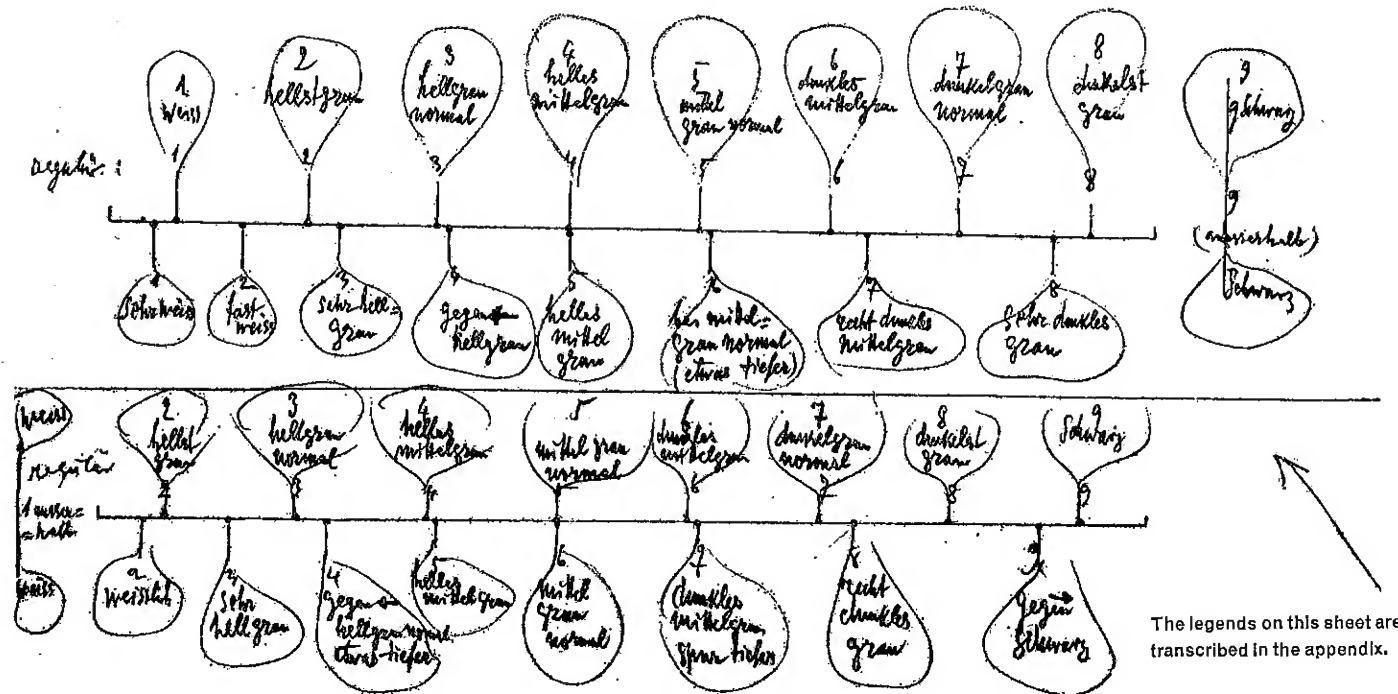 1
weiss
1
2
hellstgrau
2
3
hellgrau
normal
3
4
helles
mittelgrau
4
5
mittel
grau normal
5
6
dunkles
mittelgrau
6
7
dunkelgrau
normal
7
8
dunkelst
grau
8
9
9 Schwarz
9
(ausserhalb)
Schwarz
regulär :
1
Sehr weiss
2
fast
weiss
3
sehr hell=
grau
4
gegen
hellgrau
5
helles
mittel
grau
6
mittel=
grau normal
(etwas tiefer)
7
recht dunkles
mittelgrau
8
Sehr dunkles
grau
weiss
regulär
1 ausser=
=halb
weiss
2
hellst
grau
2
3
hellgrau
normal
3
4
helles
mittelgrau
4
5
mittel grau
normal
5
6
dunkles
mittelgrau
6
7
dunkelgrau
normal
7
8
dunkelst
grau
8
9
Schwarz
9
2
weisslich
3
sehr
hellgrau
4
gegen
hellgrau normal
etwas tiefer
5
helles
mittelgrau
6
mittel
grau
normal
7
dunkles
mittelgrau
Spur tiefer
8
recht
dunkles
grau
9
gegen
Schwarz
The legends on this sheet are
transcribed in the appendix.